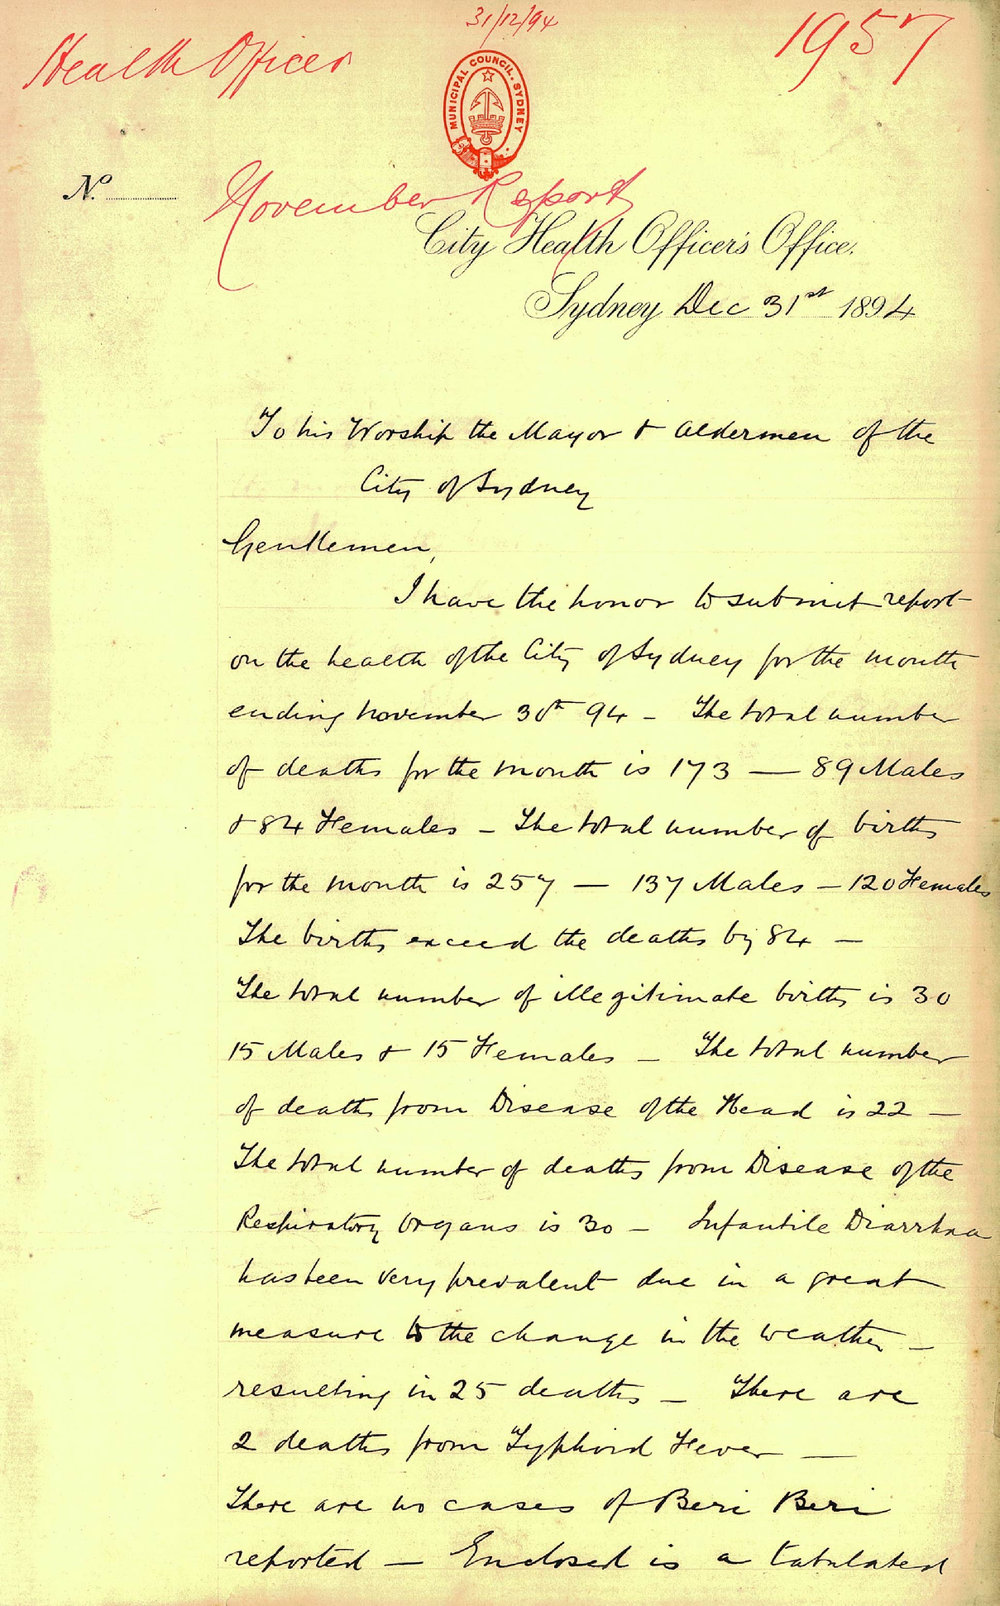 31/12/94
Health Officer
1957
MUNICIPAL COUNCIL. SYDNEY
No.
November Report
City Health Officer's Office.
Sydney Dec 31st 1894
To his Worship the Mayor & Aldermen of the
City of Sydney
Gentlemen,
I have the honor to submit report
on the health of the City of Sydney for the month
ending November 30th 94 - The total number
of deaths for the month is 173 — 89 Males
& 84 Females - The total number of births
for the month is 257 — 137 Males — 120 Females
The births exceed the deaths by 84 —
The total number of illegitimate births is 30
15 Males & 15 Females — The total number
of deaths from Disease of the Head is 22 —
The total number of deaths from Disease of the
Respiratory Organs is 30 — Infantile Diarrhea
has been very prevalent due in a great
measure to the change in the weather —
resulting in 25 deaths — There are
2 deaths from Typhoid Fever —
There are no cases of Beri Beri
reported — Enclosed is a tabulated